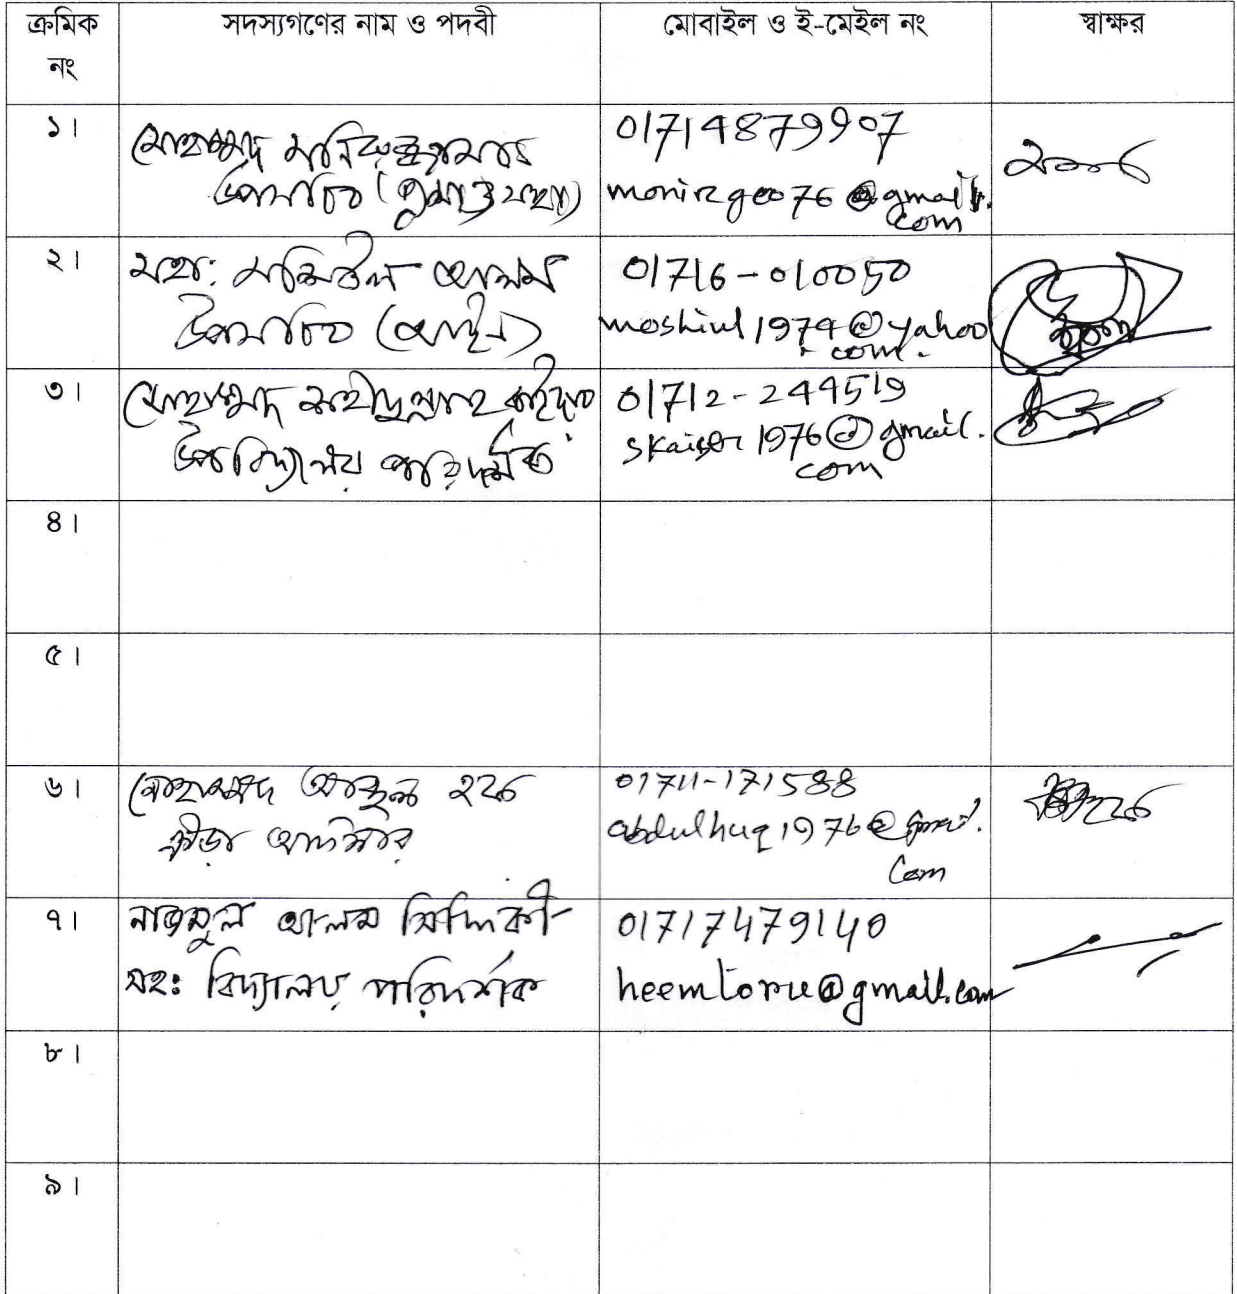 ক্রমিক নং
সদস্যগণের নাম ও পদবী
মোবাইল ও ই-মেইল নং
স্বাক্ষর
১।
মোহাম্মদ মনিরুজ্জামান
উপসচিব
01714879907
monirgeo76@gmail.
com
২।
মহা: মশিউল আলম
উপসচিব (আইন)
01716-010050
moshiul1974@yahoo
.com.
৩।
মোহাম্মদ শহীদুল্লাহ কাইসার
উপবিদ্যালয় পরিদর্শক
01712-244519
skaiser1976@gmail.
com
৪।
৫।
৬।
মোহাম্মদ আব্দুল হক
ক্রীড়া অফিসার
01711-171588
abdulhuq1976@gmail.
Com
৭।
নাজমুল আলম সিদ্দিকী
সহ: বিদ্যালয় পরিদর্শক
01717479140
heemtoru@gmail.com
৮।
৯।